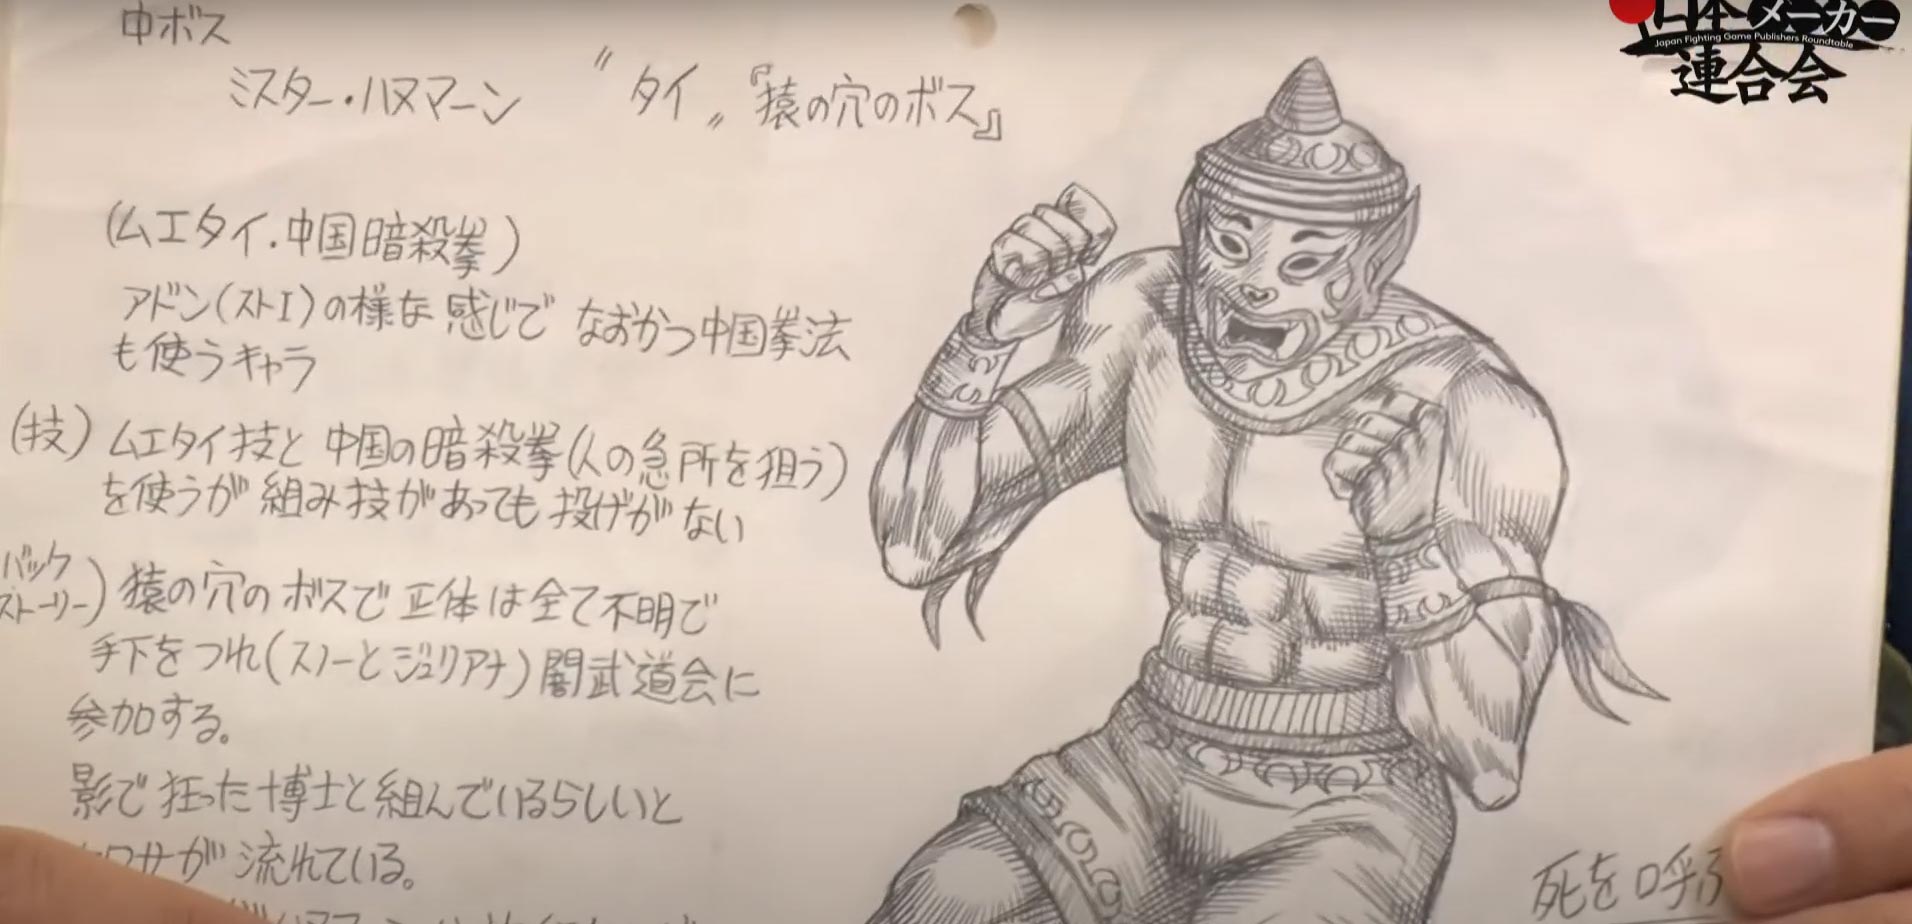 中ボス
ミスター・ハヌマーン　〝タイ〟『猿の穴のボス』
(ムエタイ.中国暗殺拳)
アドン(ストI)の様な感じで なおかつ中国拳法
も使うキャラ
(技) ムエタイ技と中国の暗殺拳(人の急所を狙う)
を使うが 組み技があっても投げがない
バック
ストーリー) 猿の穴のボスで正体は全て不明で
手下をつれ(スノーとジュリアナ)闇武道会に
参加する。
影で狂った博士と組んでいるらしいと
ウワサが流れている。
死を呼ぶ
日本メーカー
Japan Fighting Game Publishers Roundtable
連合会